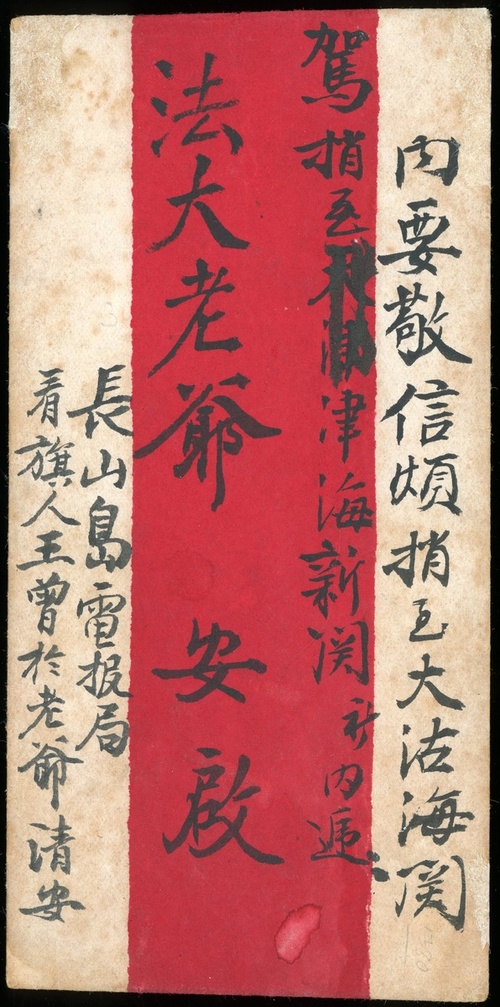 内要敬信煩捎至大沽海関
駕捎至津海新関內遞
法大老爺　安啟
長山島電报局
看旗人王曾於老爺清安